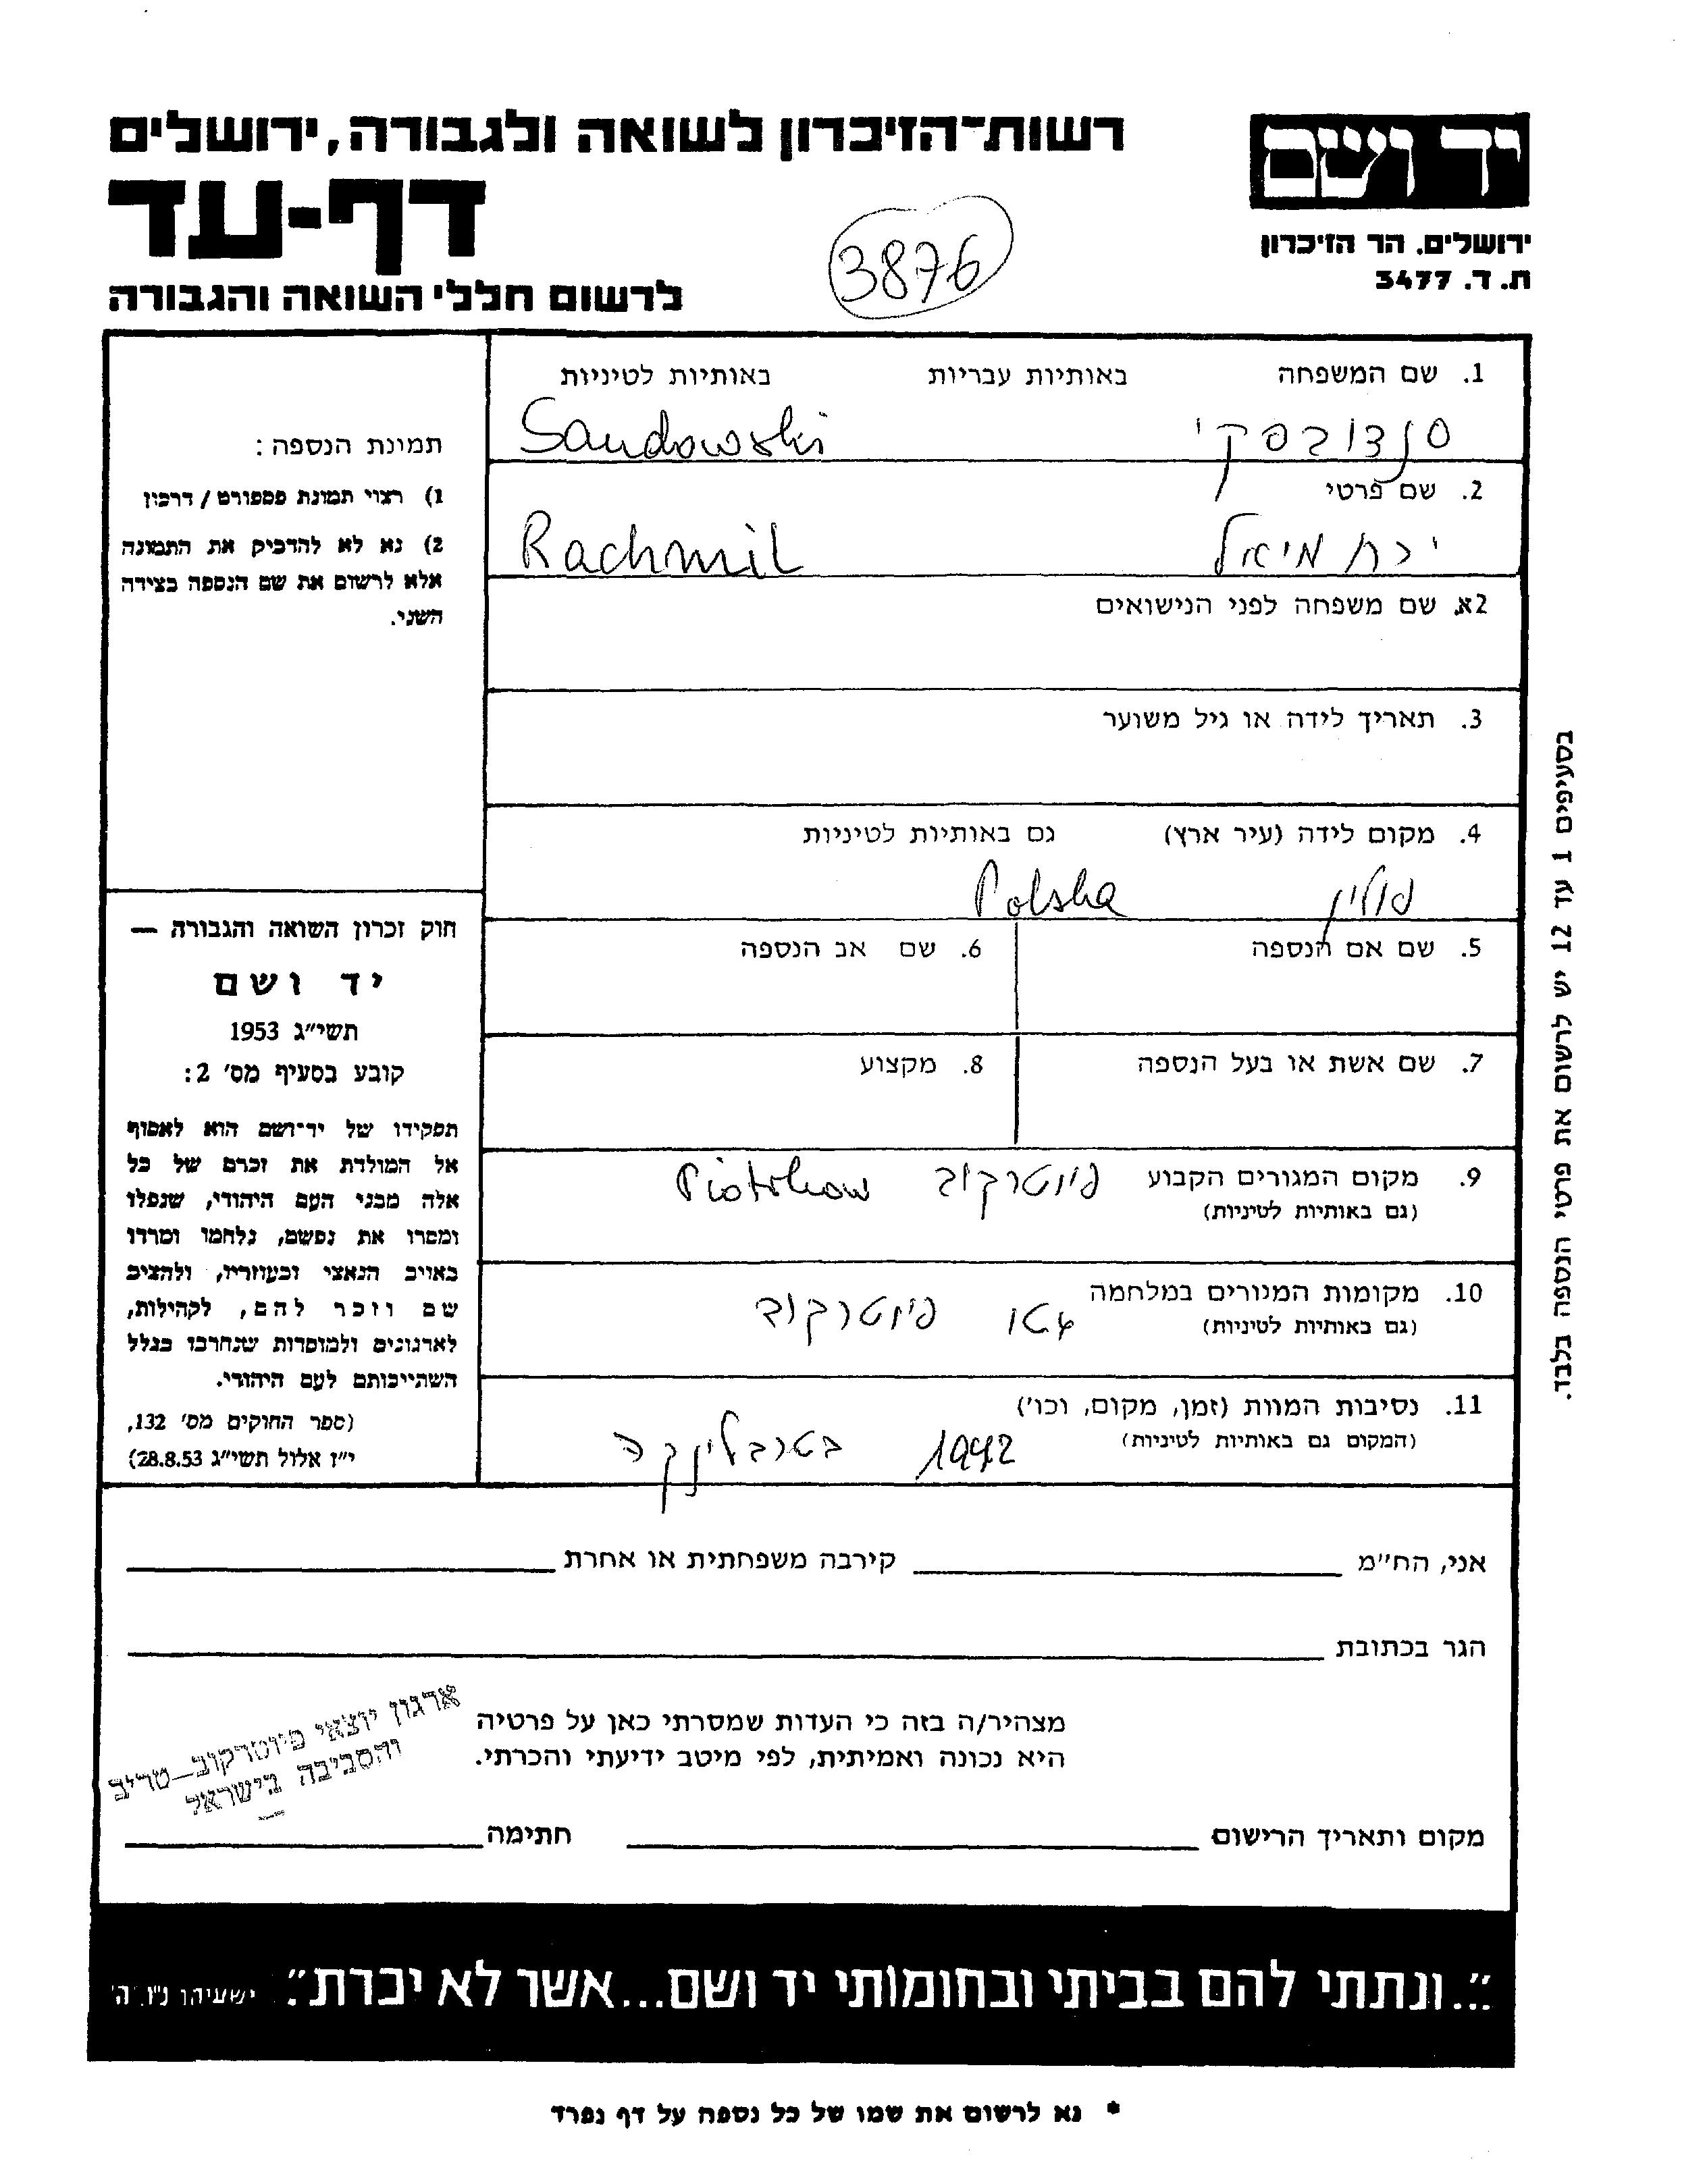 רשות־הזיכרון לשואה ולגבורה, ירושלים
דף-עד
לרשום חללי השואה והגבורה
יד ושם
ירושלים, הר הזיכרון
ת.ד. 3477
3876
1. שם המשפחה באותיות עבריות באותיות לטיניות
סנדובסקי Sandowski
2. שם פרטי
ירחמיאל Rachmil
2א. שם משפחה לפני הנישואים
3. תאריך לידה או גיל משוער
4. מקום לידה (עיר ארץ) גם באותיות לטיניות
פולין Polsha
5. שם אם הנספה 6. שם אב הנספה
7. שם אשת או בעל הנספה 8. מקצוע
9. מקום המגורים הקבוע פיוטרקוב Piotrkow
(גם באותיות לטיניות)
10. מקומות המגורים במלחמה גטו פיוטרקוב
(גם באותיות לטיניות)
11. נסיבות המוות (זמן, מקום, וכו')
(המקום גם באותיות לטיניות) 1942 בטרבלינקה
תמונת הנספה:
1) רצוי תמונת פספורט / דרכון
2) נא לא להדביק את התמונה
אלא לרשום את שם הנספה בצידה
השני.
חוק זכרון השואה והגבורה —
יד ושם
תשי״ג 1953
קובע בסעיף מס' 2:
תפקידו של יד־ושם הוא לאסוף
אל המולדת את זכרם של כל
אלה מבני העם היהודי, שנפלו
ומסרו את נפשם, נלחמו ומרדו
באויב הנאצי ובעוזריו, ולהציב
שם וזכר להם, לקהילות,
לארגונים ולמוסדות שנחרבו בגלל
השתייכותם לעם היהודי.
(ספר החוקים מס' 132,
י״ז אלול תשי״ג 28.8.53)
בסעיפים 1 עד 12 יש לרשום את פרטי הנספה בלבד.
אני, הח״מ קירבה משפחתית או אחרת
הגר בכתובת
מצהיר/ה בזה כי העדות שמסרתי כאן על פרטיה
היא נכונה ואמיתית, לפי מיטב ידיעתי והכרתי.
ארגון יוצאי פיוטרקוב–טריב
והסביבה בישראל
מקום ותאריך הרישום חתימה
״...ונתתי להם בביתי ובחומותי יד ושם...אשר לא יכרת״. ישעיהו נ״ו, ה'
* נא לרשום את שמו של כל נספה על דף נפרד